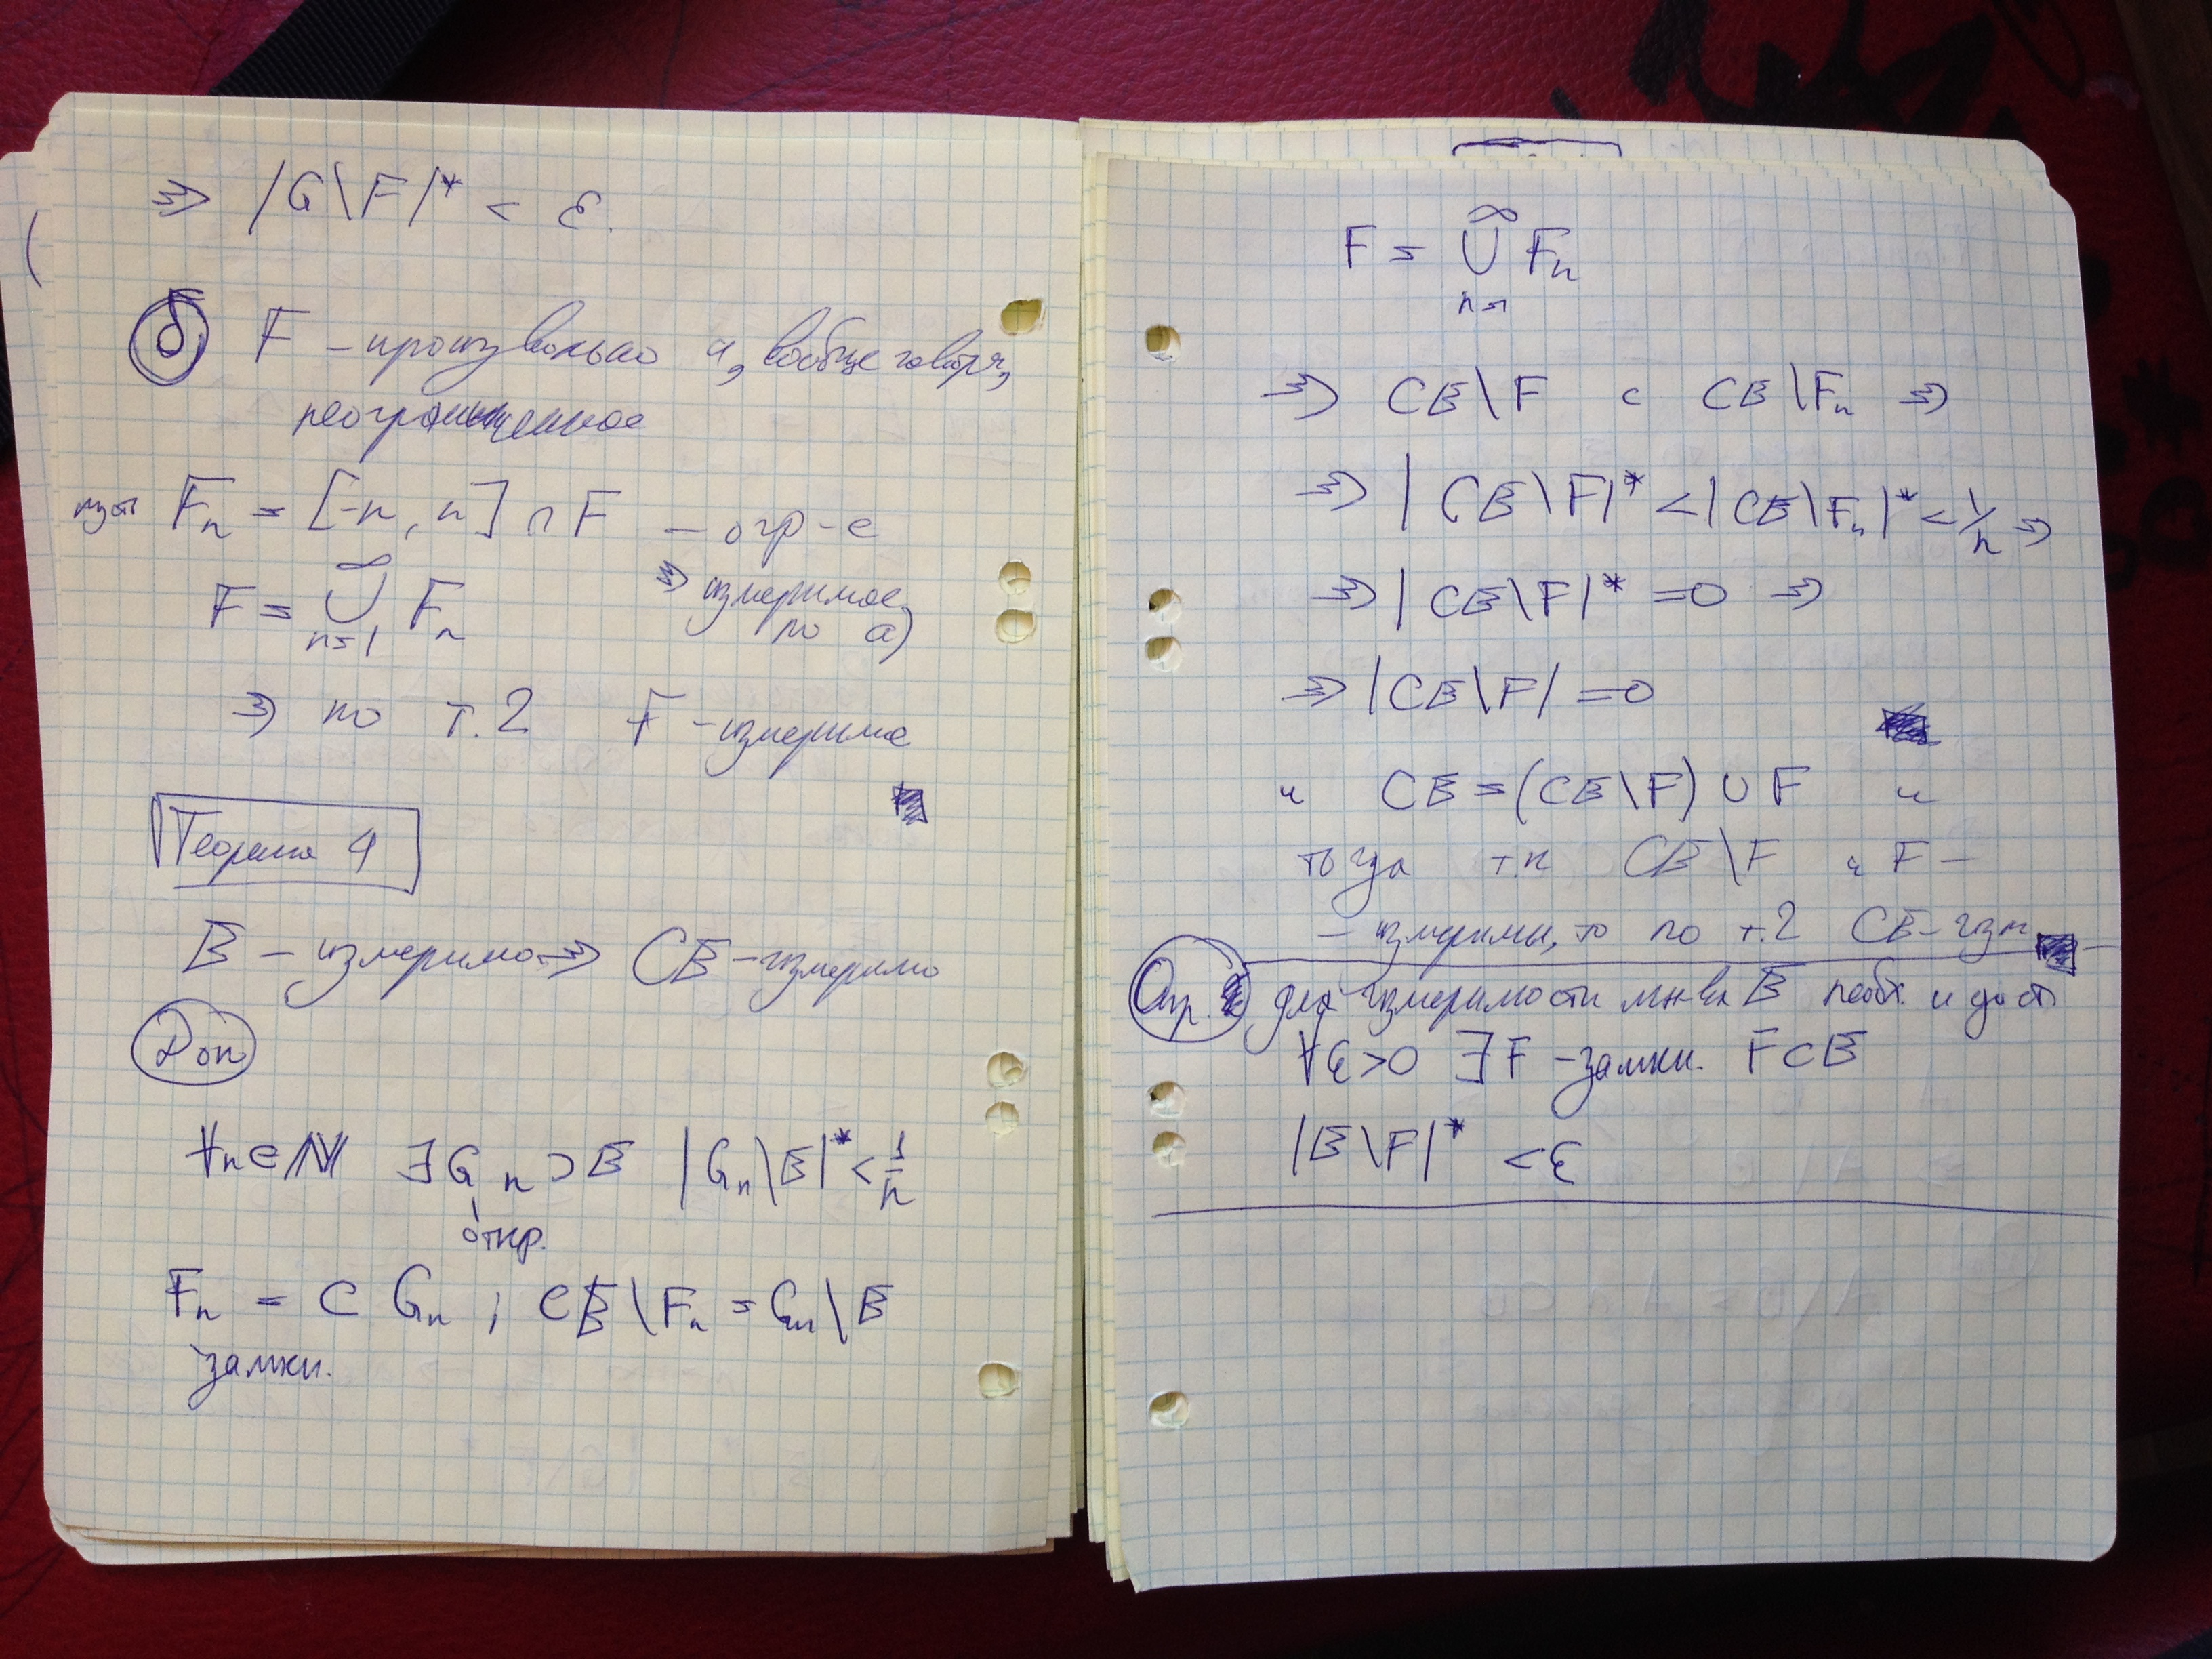 ⇒ |G\F|* < ε.
б F – произвольно а, вообще говоря,
неограниченное
пусть Fₙ = [-n, n] ∩ F – огр-е
⇒ измеримое
F = ∞⋃n=1 Fₙ по а)
⇒ по т.2 F – измеримо
Теорема 4
E – измеримо ⇒ CE – измеримо
Док
∀n∈ℕ ∃Gₙ ⊃ E |Gₙ\E|* < 1/n
откр.
Fₙ = C Gₙ ; CE\Fₙ = Gₙ\E
замкн.
F = ∞⋃n=1 Fₙ
⇒ CE\F ⊂ CE\Fₙ ⇒
⇒ |CE\F|* < |CE\Fₙ|* < 1/n ⇒
⇒ |CE\F|* = 0 ⇒
⇒ |CE\F| = 0
и CE = (CE\F) ∪ F и
тогда т.к CE\F и F –
– измеримы, то по т.2 CE – изм
Опр. для измеримости мн-ва E необх. и дост
∀ε>0 ∃F – замкн. F⊂E
|E\F|* < ε